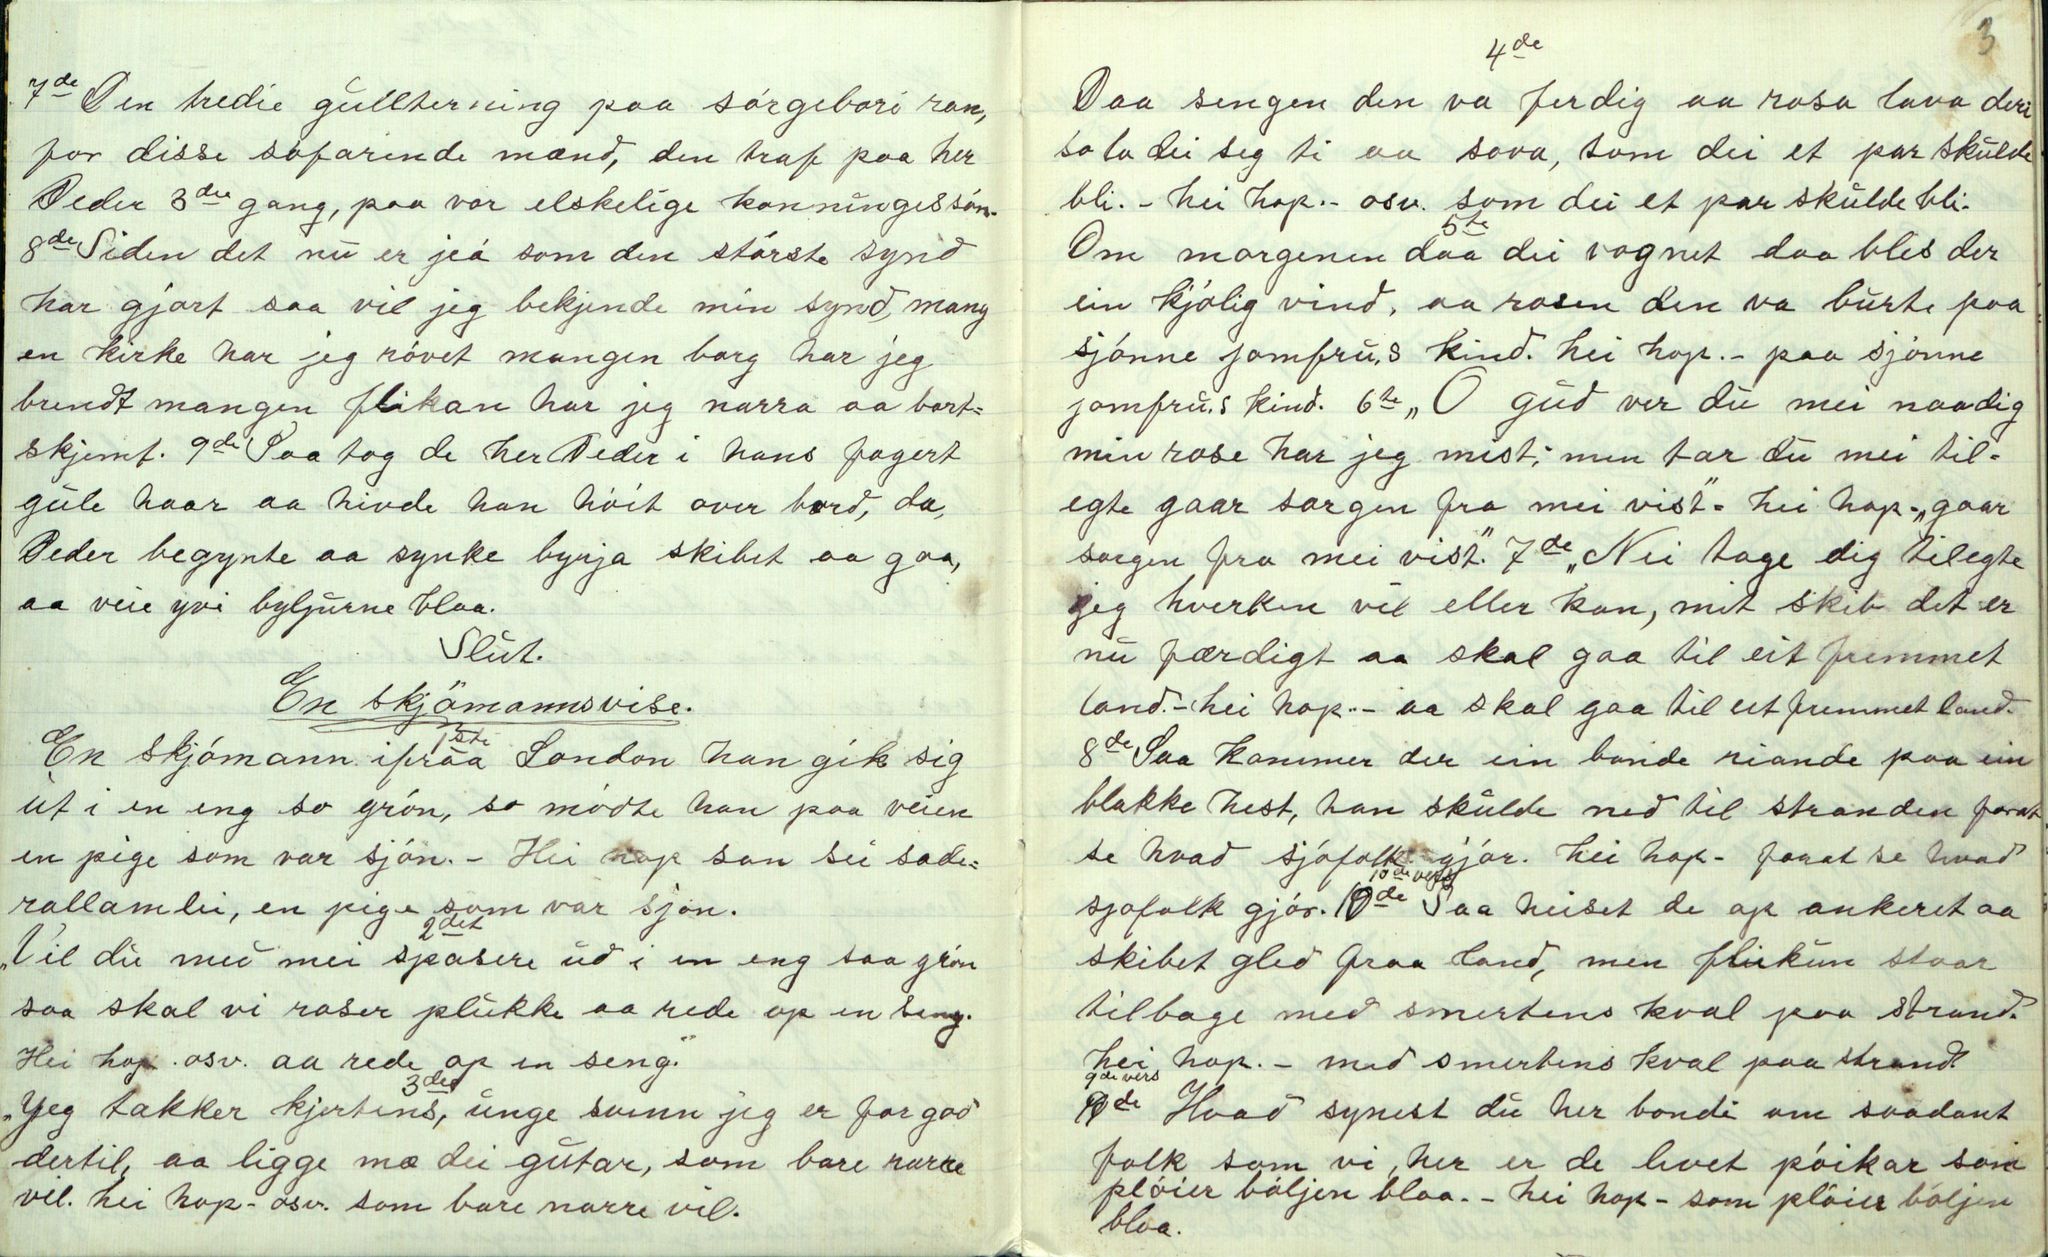 7de Den tredie gullterning paa sórgebori ran,
for disse sófarende mænd, den traf paa her
Peder 3die gang, paa vor elskelige konningessón.
8de Siden det nu er jeá som den stórste synd
har gjort saa vil jeg bekjende min synd, mang
en kirke har jeg róvet mangen borg har jeg
brendt mangen flikan har jeg narra aa bort=
skjemt. 9de Saa tog de her Peder i hans fagert
gule haar aa hivde han hóit over bord, da,
Peder begynte aa synke byrja skibet aa gaa,
aa veie yvi byljurne blaa.
Slut.
En skjömannsvise.
1ste
En skjómann ifraa London han gik sig
ut i en eng so grón, so módte han paa veien
en pige som var sjón. - Hei hop san sei sade=
rallamlei, en pige som var sjón.
2det
"Vil du med mei spasere ud i en eng saa grón
saa skal vi roser plukke aa rede op en seng.
Hei hop. osv. aa rede op en seng."
3die
"Jeg takker kjertens, unge svenn jeg er for god
dertil, aa ligge mæ dei gutar, som bare narre
vil. hei hop - osv. som bare narre vil.
3
4de
Daa sengen den va ferdig aa rosa lava deri
so la dei seg ti aa sova, som dei et par skulde
bli. - hei hop. - osv. som dei et par skulde bli.
5te
Om morgenen daa dei vognet daa bles der
ein kjólig vind, aa rosen den va burte paa
sjónne jomfru,s kind. hei hop. - paa sjónne
jomfru,s kind. 6te "O gud ver du mei naadig
min rose har jeg mist; men tar du mei til=
egte gaar sorgen fra mei vist" - hei hop - "gaar
sorgen fra mei vist." 7de "Nei tage dig tilegte
jeg hverken vil eller kan, mit skib det er
nu færdigt aa skal gaa til eit fremmet
land. - hei hop. - aa skal gaa til eit fremmet land.
8de Saa kommer der ein bonde riande paa ein
blakke hest, han skulde ned til stranden forat
se hvad sjófolk gjór. hei hop - forat se hvad
10de vers
sjofolk gjór. 10de Saa heiset de op ankeret aa
skibet gled fraa land, men flikun staar
tilbage med smertens kval paa strand.
hei hop. - med smertens kval paa strand
9de vers
Hvad synest du her bondi om saadant
folk som vi, her er de livet póikar som
plóier bóljen blaa. - hei hop - som plóier bóljen
blaa.